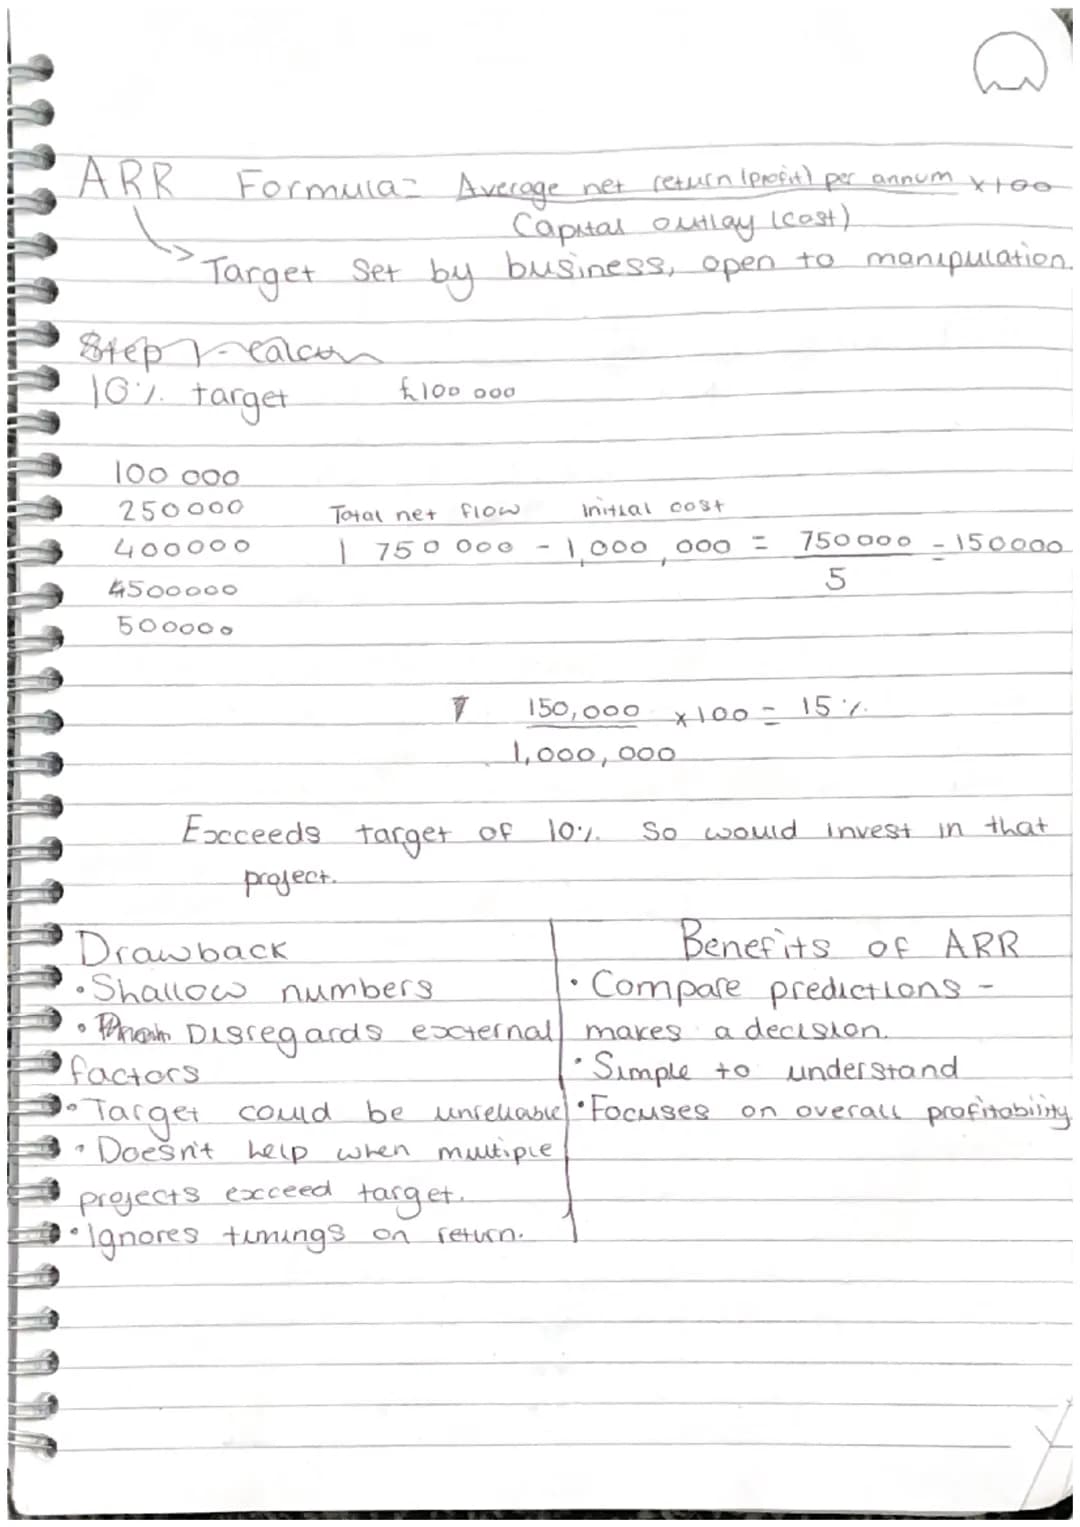 ARR Formula = Average net return (profit) per annum x100
Capital outlay (cost)
Target set by business, open to manipulation.
Step 1 - calcu
10% target £100 000
100 000
250000 Total net flow initial cost
400000 1 750 000 - 1,000,000 = 750000 = 150000
4500000 5
500000
150,000 x100 = 15%
1,000,000
Exceeds target of 10% so would invest in that
project.
Drawback
• Shallow numbers
• Disregards external
factors
• Target could be unreliable
• Doesn't help when multiple
projects exceed target.
• Ignores timings on return.
Benefits of ARR
• Compare predictions -
makes a decision.
• Simple to understand
• Focuses on overall profitability